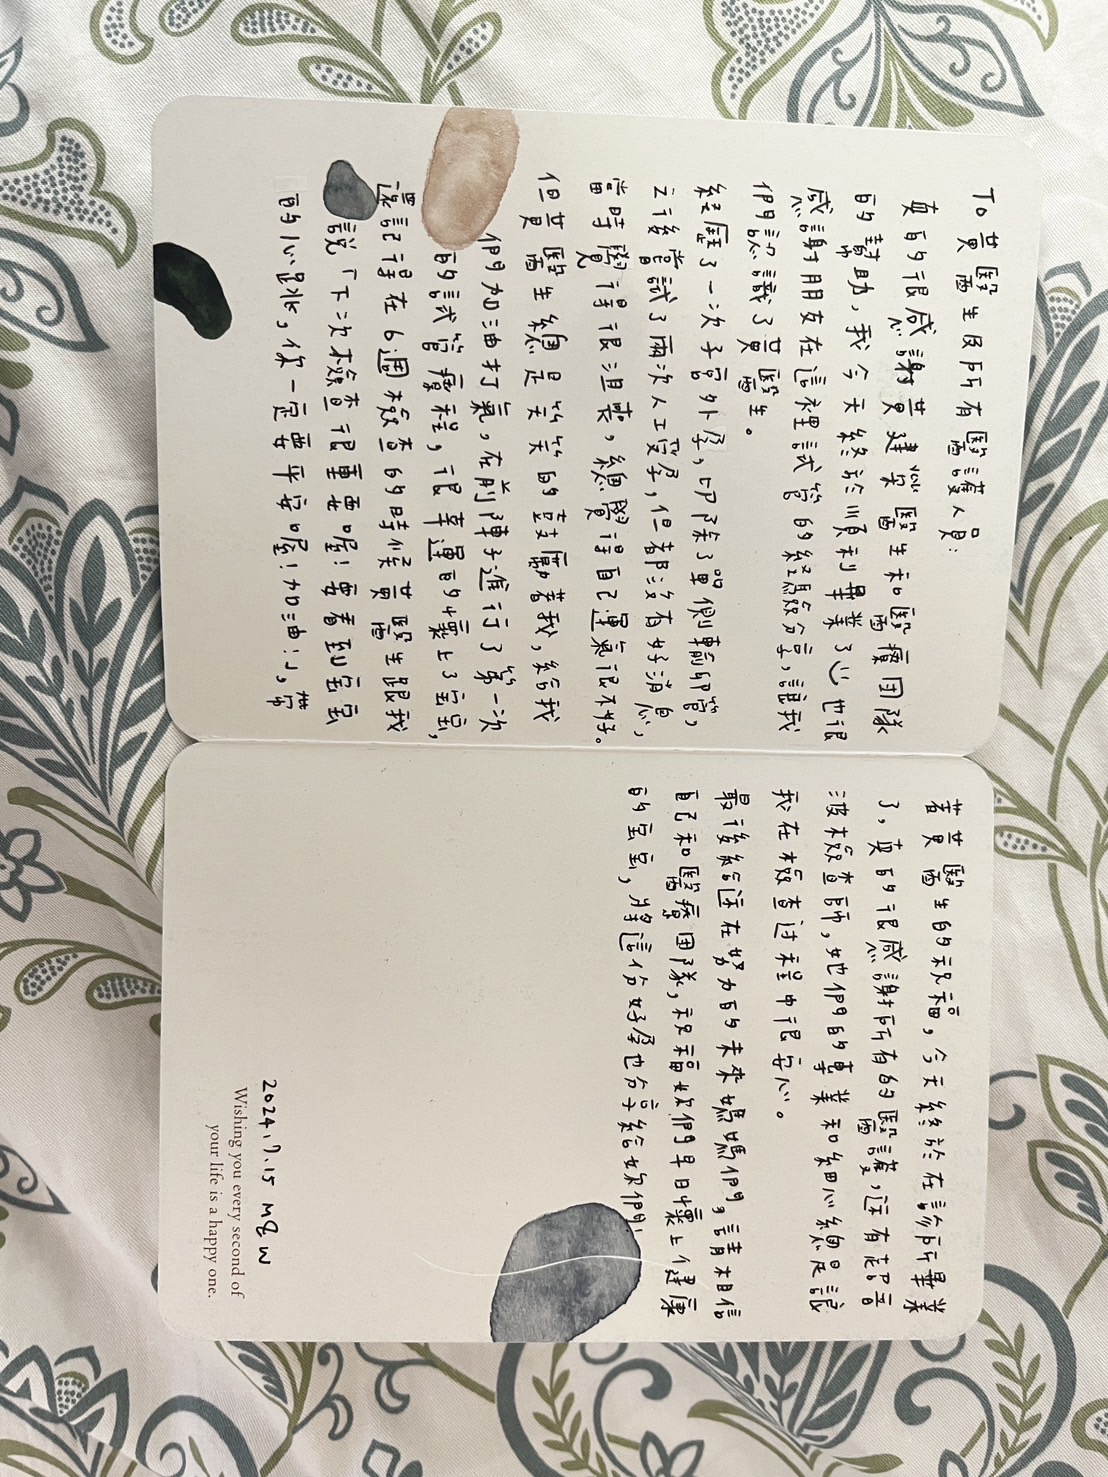 To 黃醫生及所有醫護人員:
真的很感謝黃建榮醫生和醫療團隊
的幫助,我今天終於順利畢業了 也很
感謝朋友在這裡試管的經驗分享,讓我
們認識了黃醫生。
経歷了一次子宮外孕,切除了單側輸卵管,
之後嘗試了兩次人工受孕,但都沒有好消息,
當時覺得很沮喪,總覺得自己運氣很不好。
但黃醫生總是笑笑的鼓勵著我,給我
們加油打氣,在前陣子進行了第一次
的試管療程,很幸運的懷上了宝宝,
還記得在6週檢查的時候黃醫生跟我
說「下次檢查很重要喔!要看到宝宝
的心跳,你一定要平安喔!加油!」,帶
著黃醫生的祝福,今天終於在診所畢業
了,真的很感謝所有的醫護,还有超音
波檢查師,她們的專業和細心總是讓
我在檢查过程中很安心。
最後給还在努力的未來媽媽們,請相信
自己和醫療团隊,祝福妳們早日懷上健康
的宝宝,將這份好孕也分享給妳們!
2024.7.15 M&W
Wishing you every second of
your life is a happy one.